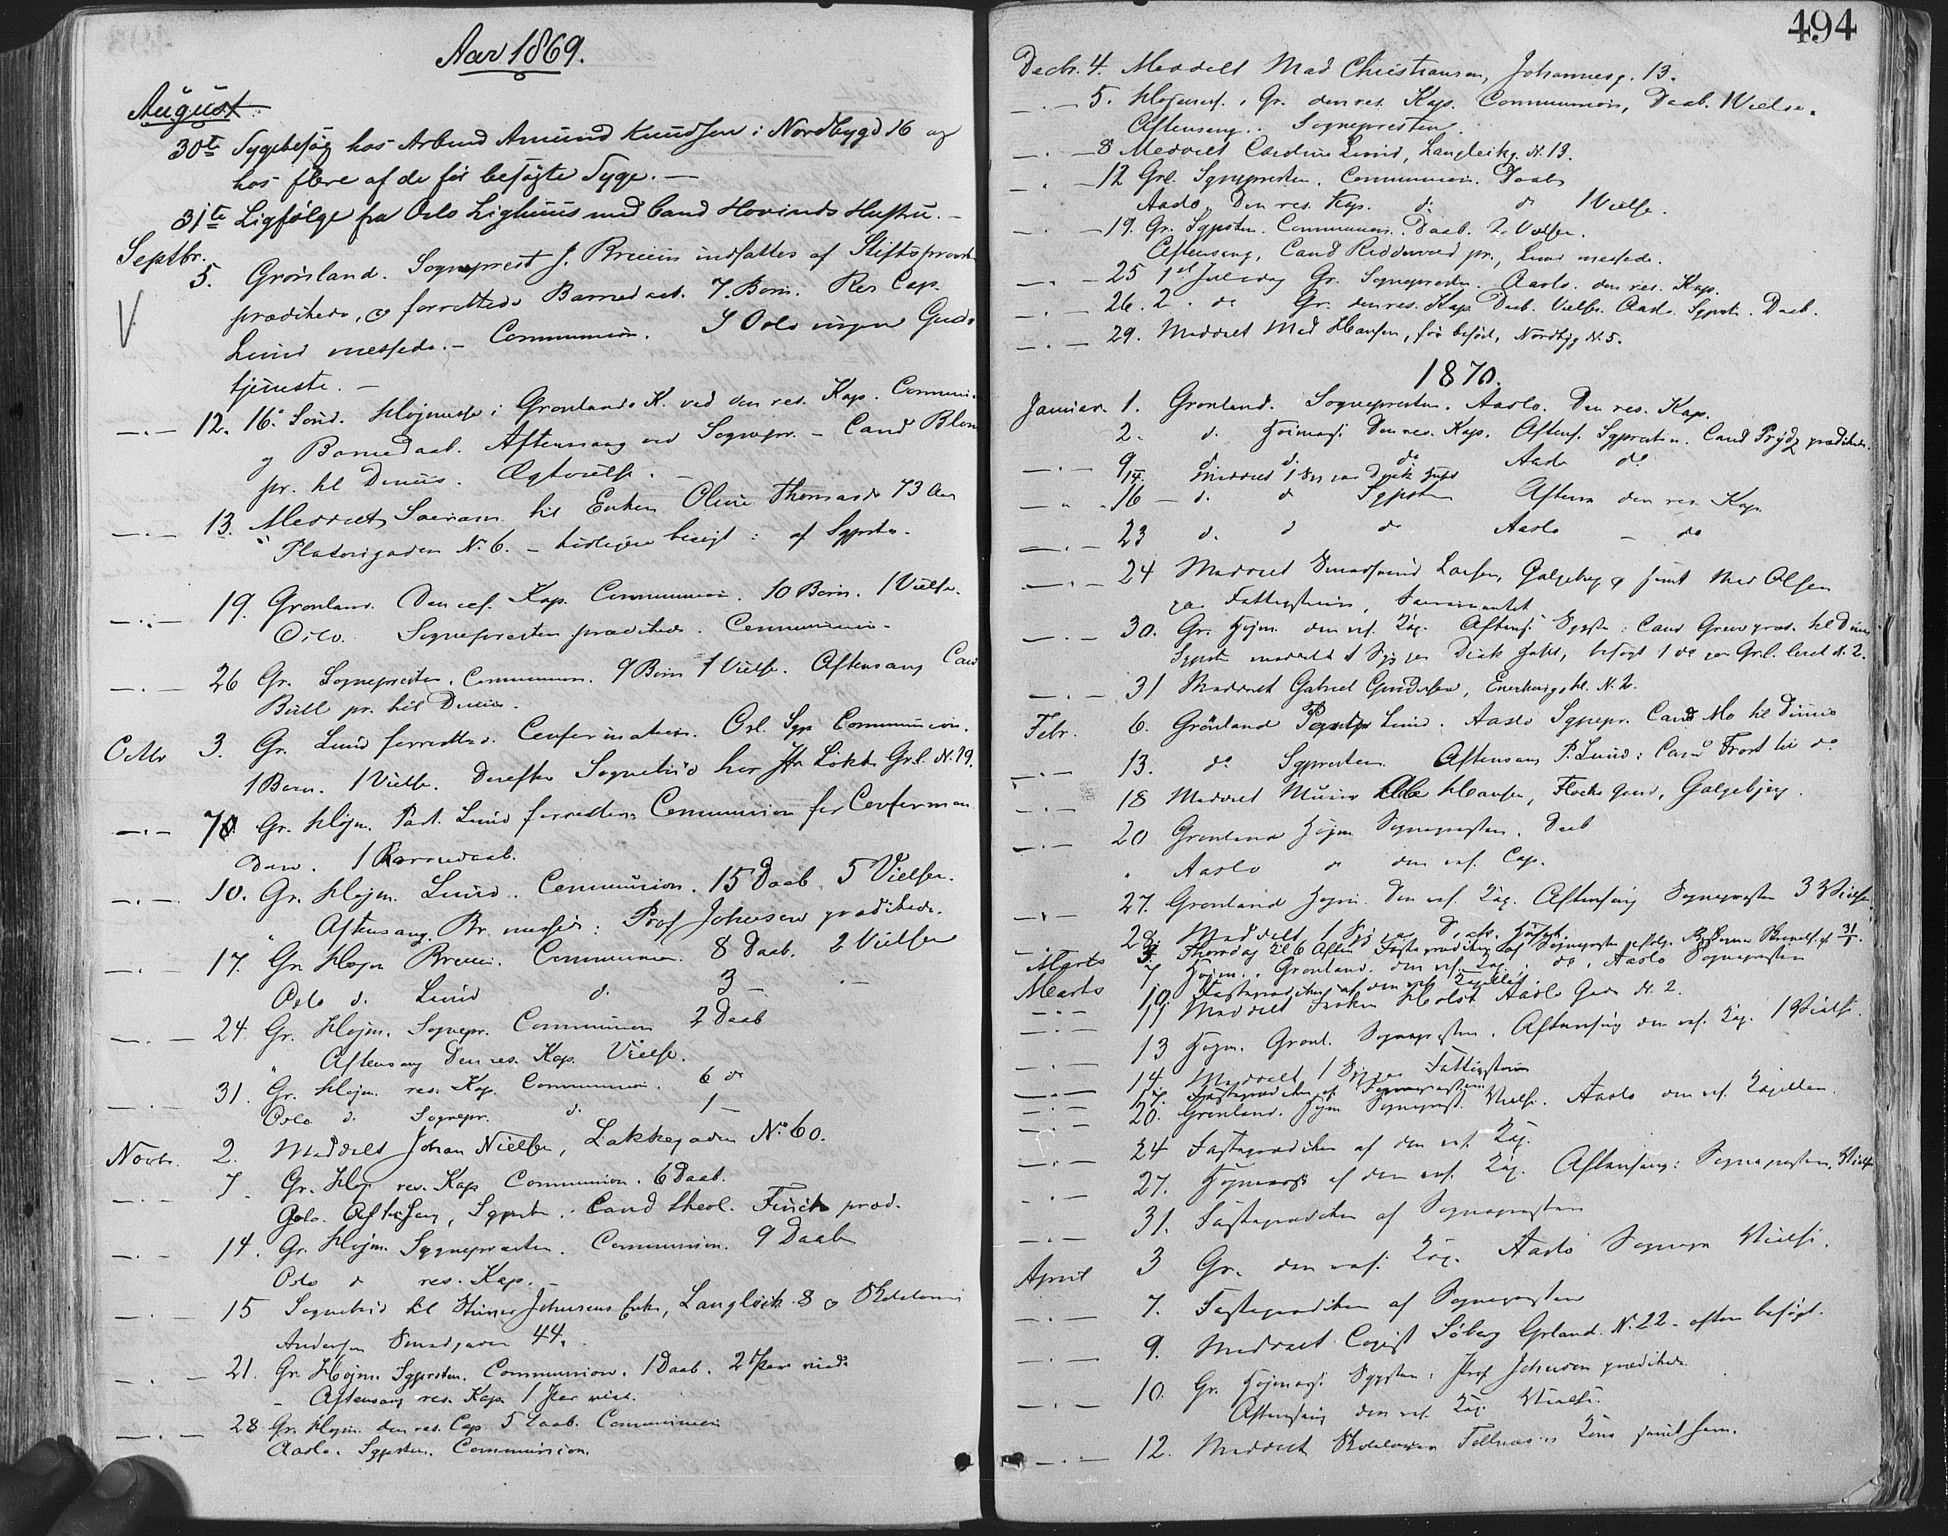 Aar 1869.
August.
30te Sygebesøg hos Arbmd Amund Knudsen i Nordbygd 16 og
hos flere af de før besøgte Syge. —
31te Ligfølge fra Oslo Lighuus med Cand Hovinds Hustru. —
Septbr.
5. Grønland. Sogneprest J. Bruun indsattes af Stiftsprovst
prædikede, og forrettede Barnedaab. 7 Børn. Res Cap.
Lund messede. — Communion. I Oslo ingen Guds
tjeneste. —
— . — 12. 16. Sønd. Højmesse i Grønlands K. ved den res. Kap. Communion
og Barnedaab. Aftensang ved Sognepr. — Cand Blom
pr. til Dimis. Ægtevielse. —
— . — 13. Meddelt Sacram. til Enken Oline Thomasd. 73 Aar
Platousgaden N. 6. — tidligere besøgt : af Sgprsten.
— . — 19. Grønland. Den res. Kap. Communion. 10 Børn. 1 Vielse.
Oslo. Sognepresten prædikede. Communion.
— . — 26 Gr. Sognepresten. Communion. 9 Børn 1 Vielse. Aftensang Cand
Bull pr. til Dimis.
Octbr 3. Gr. Lund forrettede. Confirmation. Osl. Sgp Communion.
1 Barn. 1 Vielse. Derefter Sognebud hos Løkke Grl. N. 19.
— . — 7 Gr. Højm. Past. Lund forrettede Communion for Confirman
den. 1 Barnedaab.
— . — 10. Gr. Højm. Lund. Communion. 15 Daab. 5 Vielser.
" Aftensang. Br. messede : Prof Johnson prædikede.
— . 17. Gr Højm Bruun. Communion. 8 Daab. 2 Vielser
Oslo d. Lund d. 3 — . —
— . — 24. Gr. Højm. Sognepr. Communion 2 Daab
" Aftensang Den res. Kap. Vielse.
— . — 31. Gr. Højm. res. Kap. Communion. 6 do
Oslo d. Sognepr. d. 1 —
Novbr. 2. Meddelt Johan Nielsen, Lakkegaden No 60.
— . — 7. Gr. Høj. res. Kap Communion. 6 Daab.
Oslo. Aftensang, Sgprsten. Cand theol. Finck præd.
— . — 14. Gr. Højm. Sognepresten. Communion. 9 Daab
Oslo d res. Kap. —
— . — 15 Sognebud til Johnsens Enke, Langleik. 8 og Skolelærer
Andersen Smedgaden 44.
— . — 21. Gr. Højm. Sgprsten. Communion. 1 Daab. 2 Par viede
— Aftensang res. Kap 1 Par viet.
— . — 28 Gr. Højm. den res. Cap 5 Daab. Communion
Aaslo. Sgpsten. Communion.
494
Decbr. 4. Meddelt Mad Christiansen, Johannesg. 13.
— . — 5. Højmesse. Gr. den res. Kap. Communion, Daab. 1 Vielse.
Aftensang. Sognepresten.
— . — 8 Meddelt Lund, Langleikg. N. 13.
— . — 12 Grl. Sgnepresten. Communion. Daab
Aaslo. Den res. Kap. d. do 1 Vielse.
— . — 19. Gr. Sgpsten. Communion. Daab. 2 Vielser.
Aftensang, Cand Riddervold pr., Lund messede.
— . — 25 1st Juledag Gr. Sognepresten. Aaslo. den res. Kap.
— . — 26. 2. do Gr. den res. Kap Daab. Vielse. Aaslo. Sgprstn. Daab.
— . — 29. Meddelt Mad Hansen, før besøgt, Nordbyg N. 5.
1870.
Januar. 1. Grønland. Sognepresten. Aaslo. Den res. Kap.
2. d. Højmesse Den res. Kap. Aftens. Sgpresten. Cand Prydz prædikede.
— . — 9 d. d. do Aaslo do
14. Meddelt 1 Syg paa Hosp
— " — 16 — d. d Sgpsten Aftens den res. Kap
— . — 23 d. d do Aaslo — do
— . — 24 Meddelt Larsen, Galgeberg og samt Mad Olsen
paa Fattigstuen, Sacramentet
— . — 30. Gr. Højm. den res. Kap. Aftens. Sgpstn : Cand Greve præd. til Dimis
Sgpsten meddelt 1 Syg paa Hosp, besøgt 1 do paa Grl. N. 2.
— . — 31 Meddelt Gabriel Gundersen, N. 2.
Febr. 6. Grønland Lund. Aaslo Sgnepr. Cand Mo til Dimis
— . — 13. do Sgpresten. Aftensang P. Lund : Cand Frost til do
— . — 18 Meddelt Hansen, Galgebjerg.
— . — 20 Grønland Højm Sognepresten. Daab
" Aaslo do den res. Cap.
— . — 27. Grønland Højm. Den res. Kap. Aftensang Sognepresten 3 Vielser.
28. Meddelt 1 Syg paa
Marts 3. Thorsdag Kl 6 Aften, Fasteprædiken af Sognepresten
7 Højm. Grønland. den res. Kap. : do, Aaslo Sognepresten
Marts 10 Fasteprædiken af den res. Kapellan
— . — 11 Meddelt Frøken Holst Aaslo Gade N. 2.
— . — 13 Højm. Grønl. Sognepresten. Aftensang den res. Kap. 1 Vielse.
— . — 14. Meddelt 1 Syg paa Fattigstuen
— . — 17. Fasteprædiken af Sognepresten
— . — 20. Grønland. Højm Sogneprest. Vielse. Aaslo den res. Kapellan.
— . — 24 Fasteprædiken af den res. Kap.
— . — 27. Højmesse af den res. Kap. Aftensang : Sognepresten, Vielse
— . — 31. Fasteprædiken af Sognepresten
April 3 Gr. den res. Kap. Aaslo Sognepr Vielse.
— . — 7. Fasteprædiken af Sognepresten
— . — 9. Meddelt Copist Søberg Grland. N. 22 — ofte besøgt.
— . — 10. Gr. Højmesse Sgpsten, Prof Johnson prædikede
Aftensang den res. Kap Vielse.
— . — 12. Meddelt Skolelærer Kone samt ham.